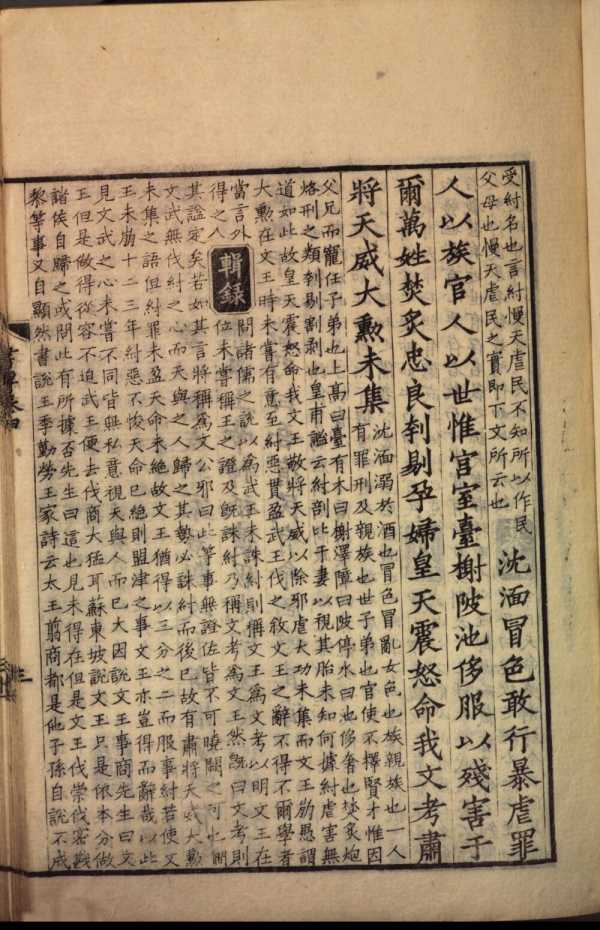 受紂名也言紂慢天虐民不知所以作民
父母也慢天虐民之實即下文所云也
沈湎冒色敢行暴虐罪
人以族官人以世惟宮室臺榭陂池侈服以殘害于
爾萬姓焚炙忠良刳剔孕婦皇天震怒命我文考肅
將天威大勳未集
沈湎溺於酒也冒色冒亂女色也族親族也一人
有罪刑及親族也世子弟也官使不擇賢才惟因
父兄而寵任子弟也土高曰臺有木曰榭澤障曰陂停水曰池侈奢也焚炙炮
烙刑之類刳剔割剥也皇甫謐云紂剖比干妻以視其胎未知何據紂虐害無
道如此故皇天震怒命我文王敬將天威以除邪虐大功未集而文王崩愚謂
大勳在文王時未嘗有意至紂惡貫盈武王伐之敘文王之辭不得不爾學者
當言外
得之
輯錄
問諸儒之說以為武王未誅紂則稱文王為文考以明文王在
位未嘗稱王之證及既誅紂乃稱文考為文王然既曰文考則
其謚定矣若如其言將稱為文公邪曰此等事無證佐皆不可曉闕之可也問
文武無伐紂之心而天與之人歸之其勢必誅紂而後已故有肅將天威大勳
未集之語但紂罪未盈天命未絕故文王猶得以三分之二而服事紂若使文
王未崩十二三年紂惡不悛天命已絕則盟津之事文王亦豈得而辭哉以此
見文武之心未嘗不同皆無私意視天與人而已大因說文王事商先生曰文
王但是做得從容不迫武王便去伐商太猛耳蘇東坡說文王只是依本分做
諸侯自歸之或問此有所據否先生曰這也見未得在但是文王伐崇伐密戡
黎等事又自顯然書說王季勤勞王家詩云太王翦商都是他子孫自說不成